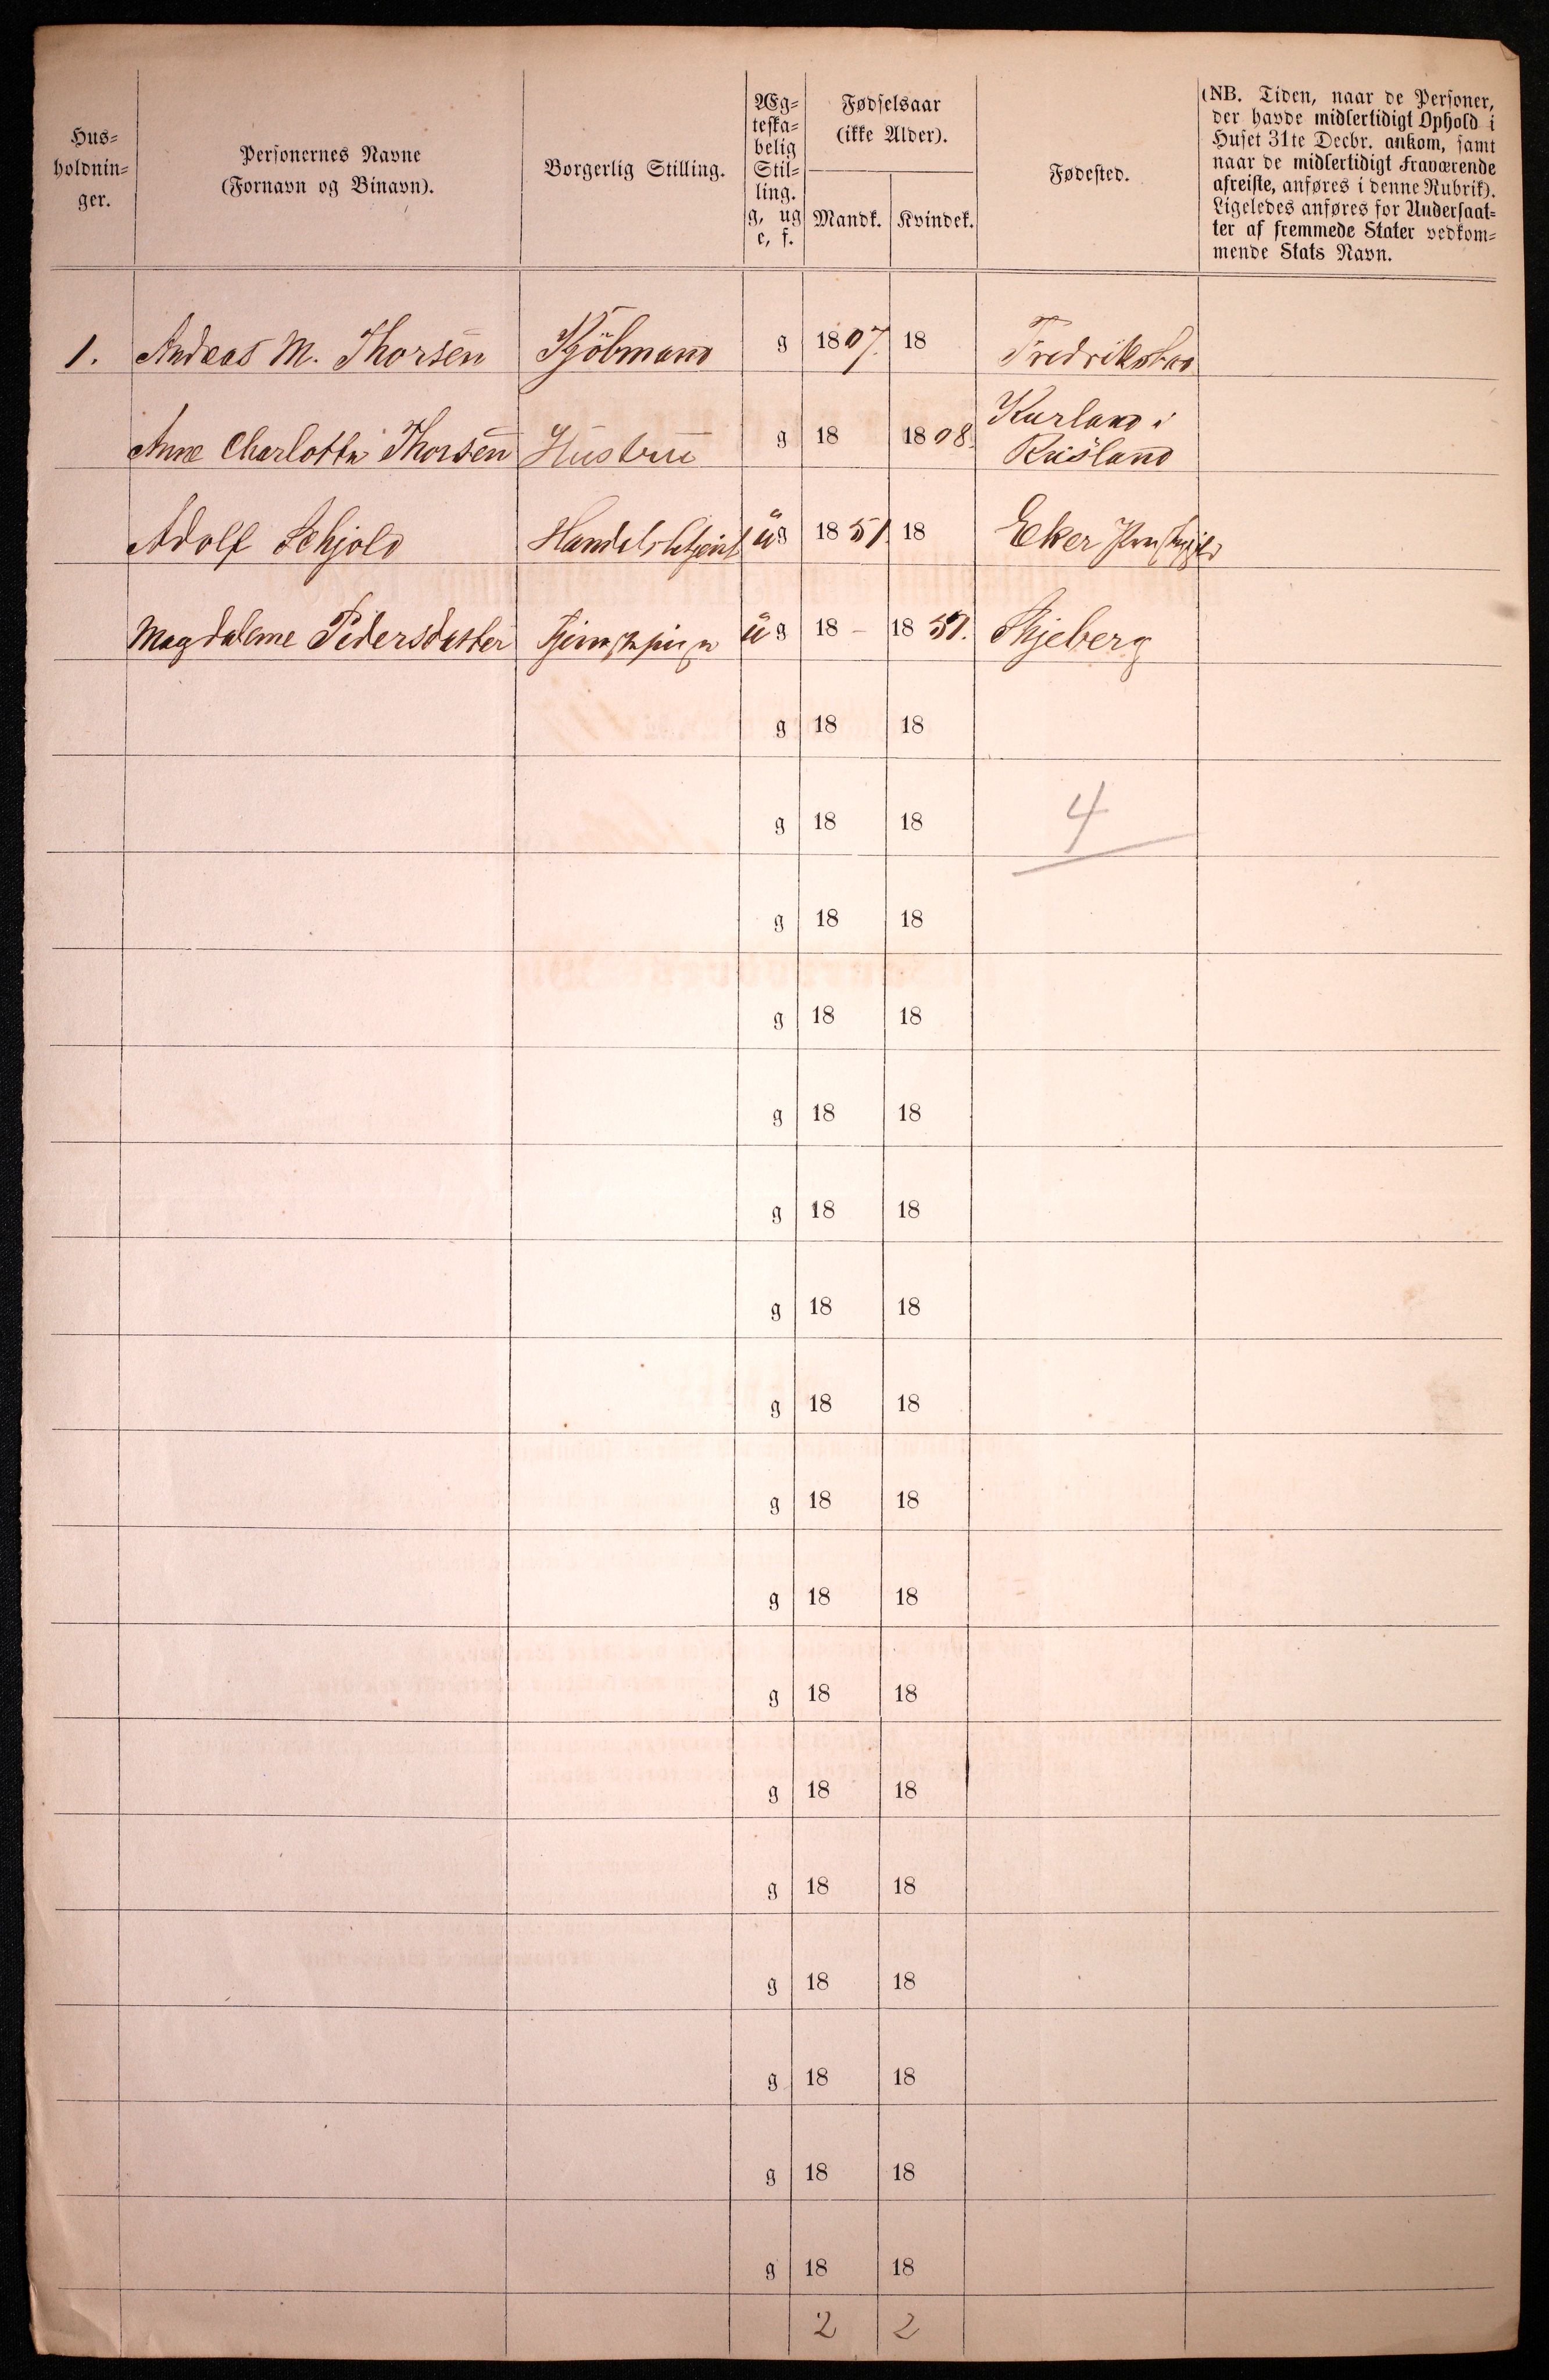 Hus=
holdnin=
ger.
Personernes Navne
(Fornavn og Binavn).
Borgerlig Stilling.
Æg=
teska=
belig
Stil=
ling.
g, ug
e, f.
Fødselsaar
(ikke Alder).
Mandk. Kvindek.
Fødested.
(NB. Tiden, naar de Personer,
der havde midlertidigt Ophold i
Huset 31te Decbr. ankom, samt
naar de midlertidigt Fraværende
afreiste, anføres i denne Rubrik).
Ligeledes anføres for Undersaat=
ter af fremmede Stater vedkom=
mende Stats Navn.
1. Andreas M. Thorsen Kjöbmand g 1807. 18 Fredrikstad
Anne Charlotte Thorsen Hustru g 18 1808. Kurland i
Rusland
Adolf Schjold Handelsbetjent ug 1851. 18 Eker
Magdalene Pedersdatter Tjenestepige ug 18 – 1851. Skjeberg
g 18 18
g 18 18 4
g 18 18
g 18 18
g 18 18
g 18 18
g 18 18
g 18 18
g 18 18
g 18 18
g 18 18
g 18 18
g 18 18
g 18 18
g 18 18
g 18 18
g 18 18
2 2